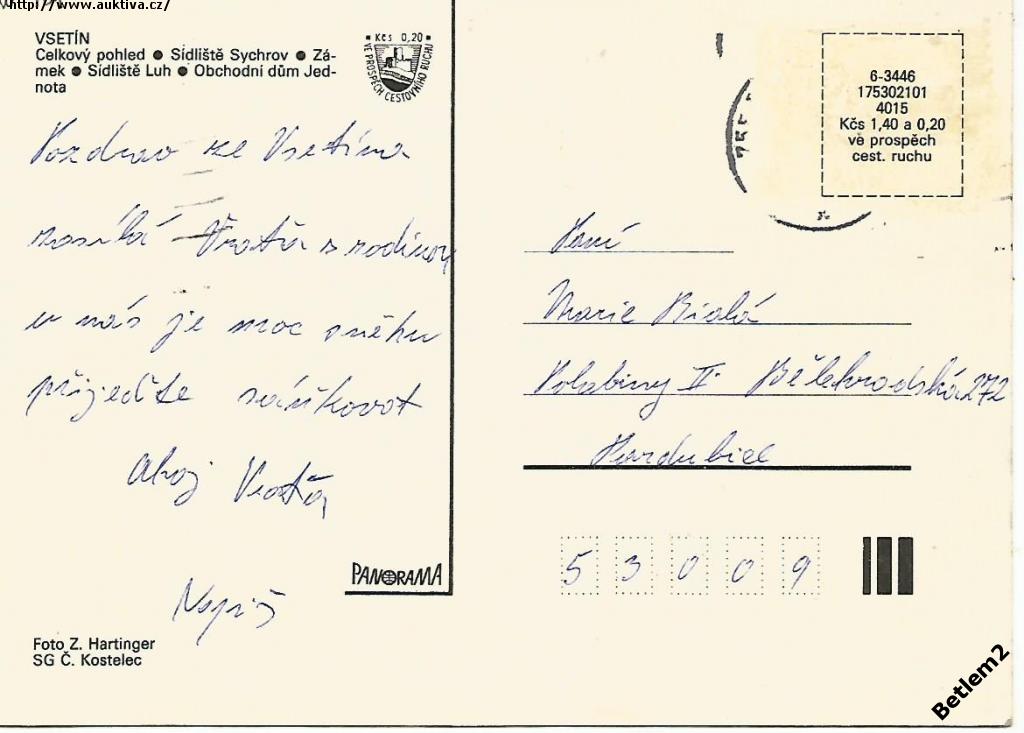 http://www.auktiva.cz/
VSETÍN
Celkový pohled ● Sídliště Sychrov ● Zá-
mek ● Sídliště Luh ● Obchodní dům Jed-
nota
Kčs 0,20
VE PROSPĚCH CESTOVNÍHO RUCHU
Pozdrav ze Vsetína
zasílá Vratá s rodinou
u nás je moc sněhu
přijeďte sáňkovat
Ahoj Vratá
Napiš
PANORAMA
Foto Z. Hartinger
SG Č. Kostelec
6-3446
175302101
4015
Kčs 1,40 a 0,20
ve prospěch
cest. ruchu
Paní
Marie Bialá
Polabiny II. Bělehradská 272
Pardubice
5 3 0 0 9
Betlem2